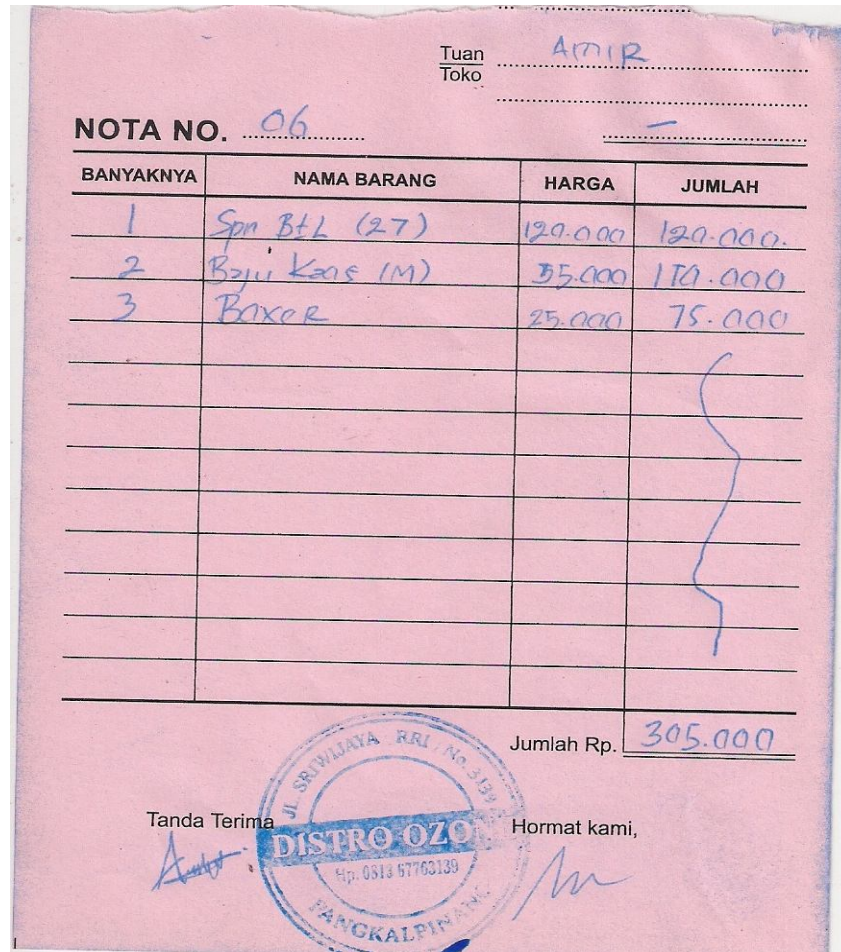 Tuan AMIR
Toko
NOTA NO. 06 –
BANYAKNYA NAMA BARANG HARGA JUMLAH
1 Spn BtL (27) 120.000 120.000.
2 Baju Kaos (M) 55.000 110.000
3 Boxer 25.000 75.000
Jumlah Rp. 305.000
Tanda Terima Hormat kami,
JL. SRIWIJAYA RRI No. 3139
DISTRO OZON
Hp. 0813 67763139
PANGKALPINANG